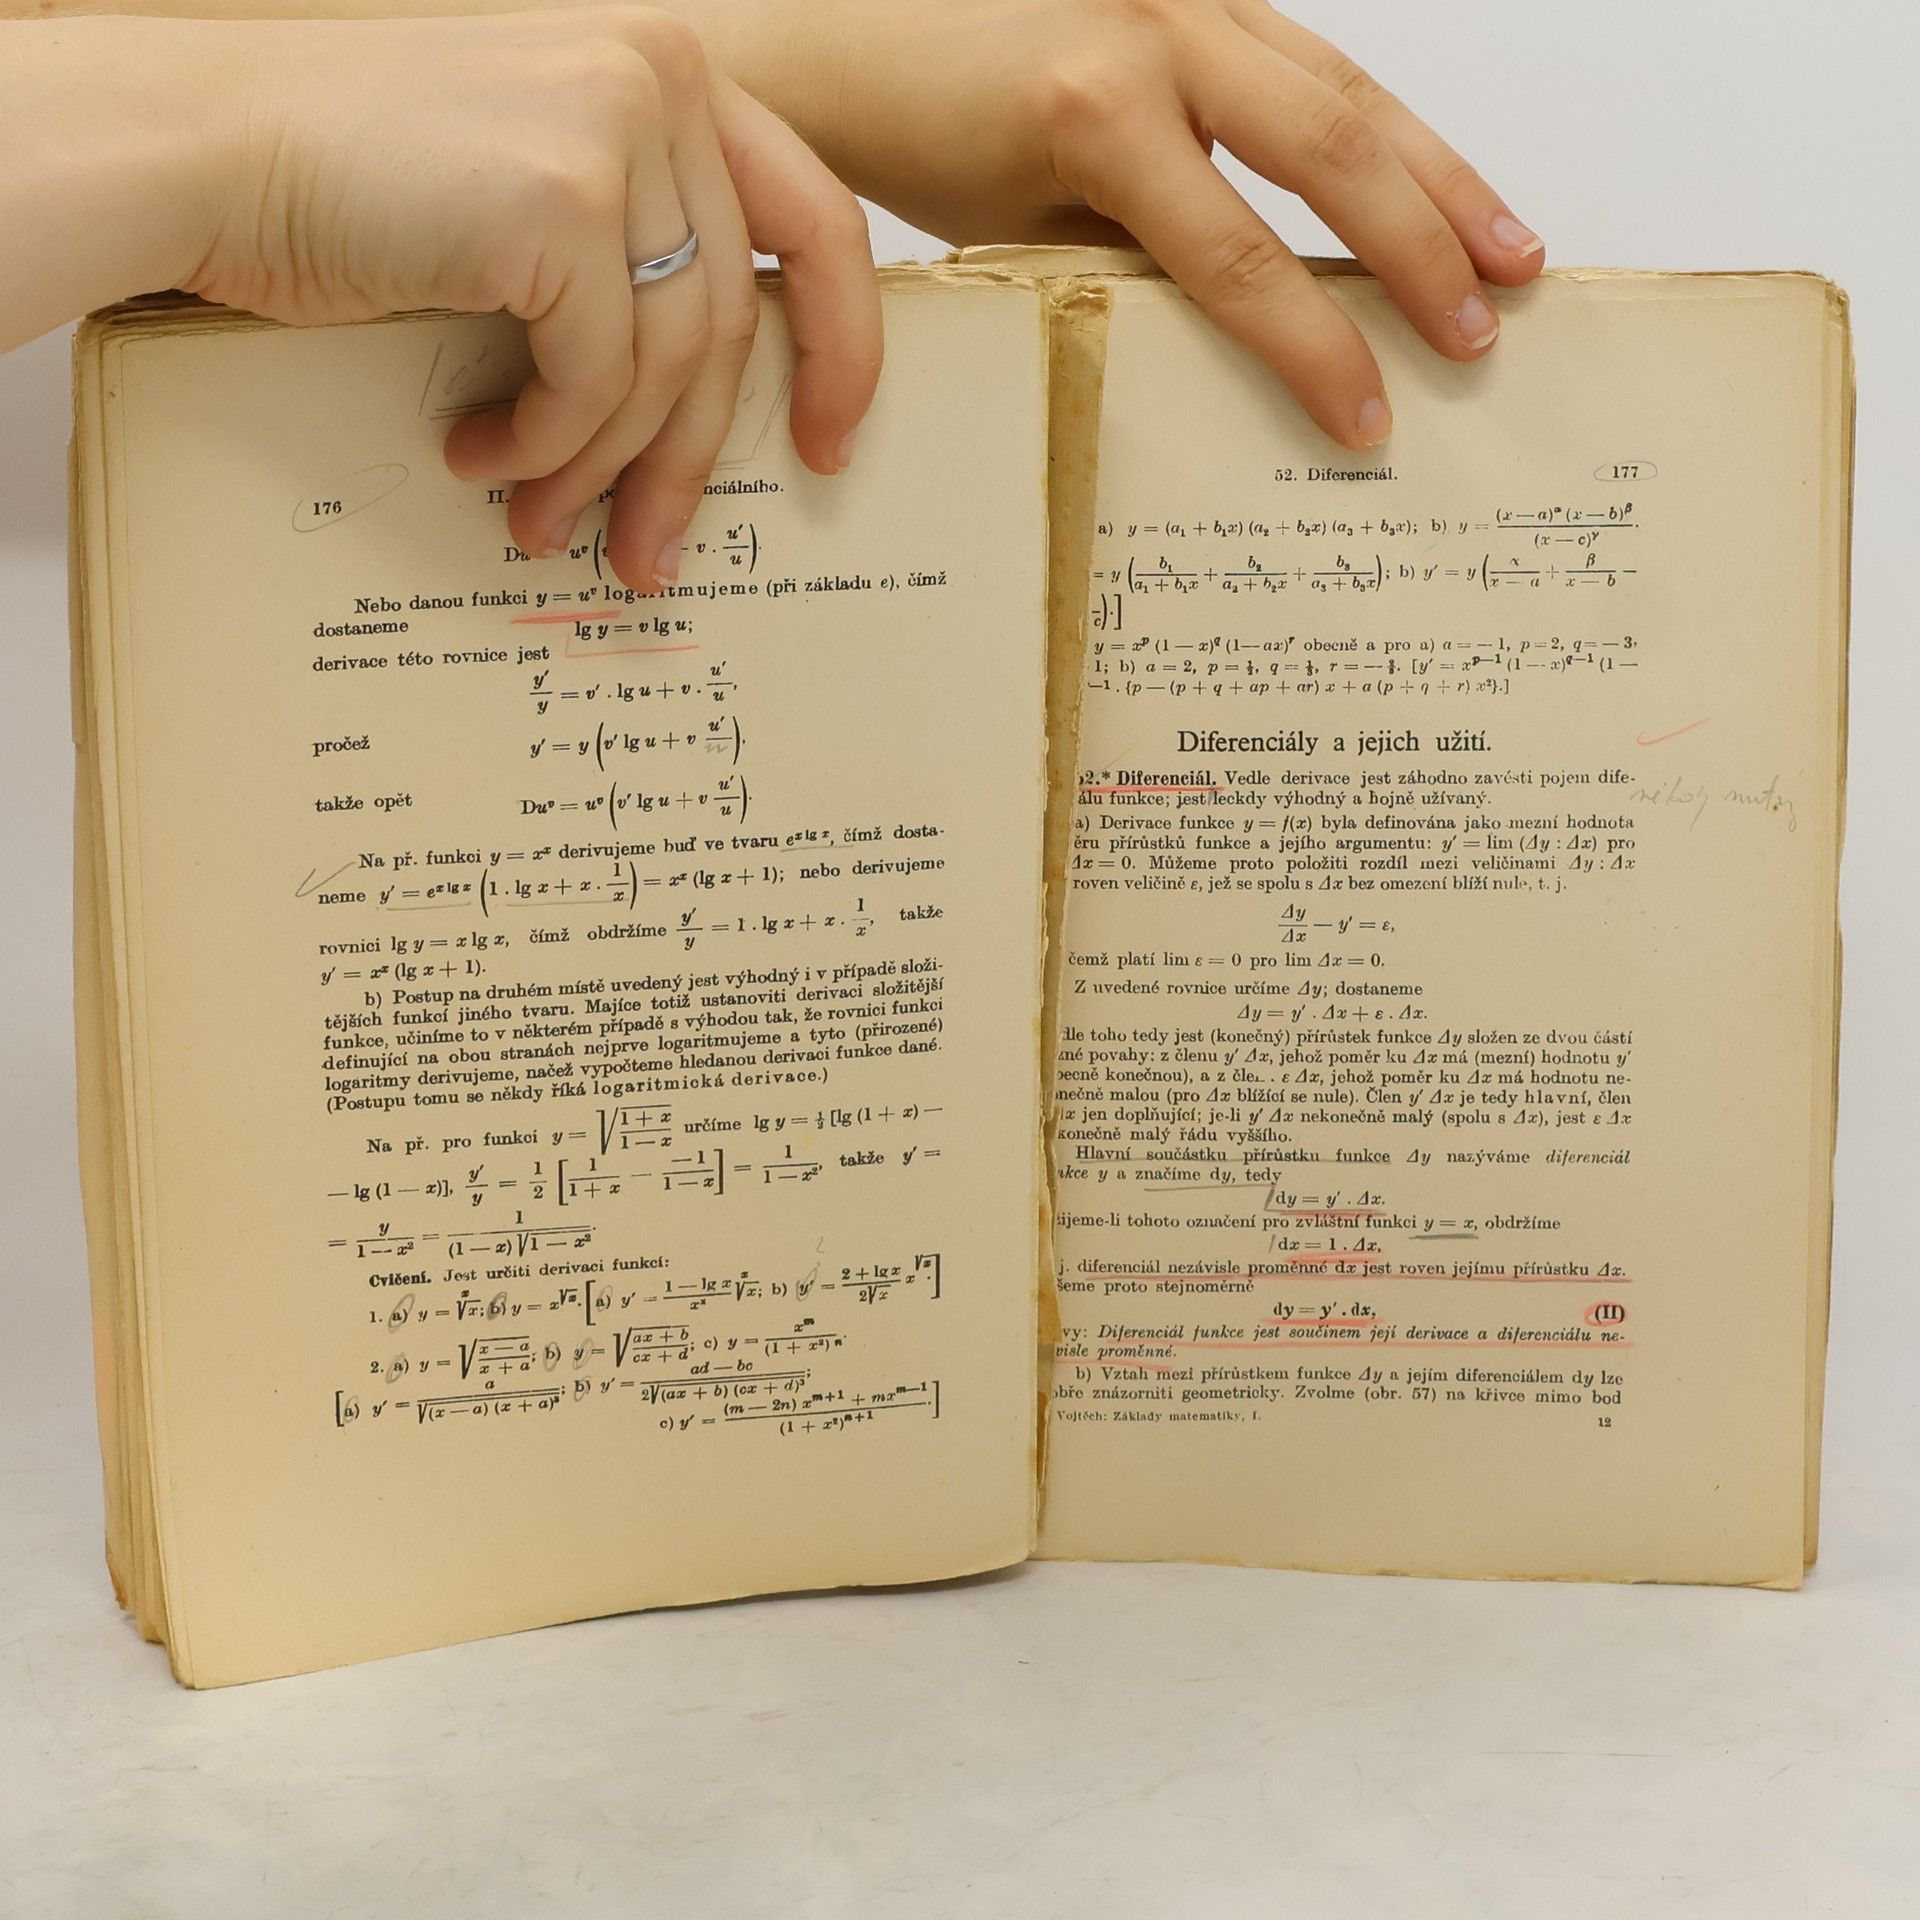 176
II. nciálního.
Du uᵛ ( - v . u′/u ).
Nebo danou funkci y = uᵛ logaritmujeme (při základu e), čímž
dostaneme
lg y = v lg u;
derivace této rovnice jest
y′/y = v′ . lg u + v . u′/u,
pročež y′ = y (v′ lg u + v u′/u),
takže opět Duᵛ = uᵛ (v′ lg u + v u′/u).
Na př. funkci y = xˣ derivujeme buď ve tvaru e^{x lg x}, čímž dosta-
neme y′ = e^{x lg x} (1 . lg x + x . 1/x) = xˣ (lg x + 1); nebo derivujeme
rovnici lg y = x lg x, čímž obdržíme y′/y = 1 . lg x + x . 1/x, takže
y′ = xˣ (lg x + 1).
b) Postup na druhém místě uvedený jest výhodný i v případě složi-
tějších funkcí jiného tvaru. Majíce totiž ustanoviti derivaci složitější
funkce, učiníme to v některém případě s výhodou tak, že rovnici funkci
definující na obou stranách nejprve logaritmujeme a tyto (přirozené)
logaritmy derivujeme, načež vypočteme hledanou derivaci funkce dané.
(Postupu tomu se někdy říká logaritmická derivace.)
Na př. pro funkci y = √((1 + x)/(1 — x)) určíme lg y = ½ [lg (1 + x) —
— lg (1 — x)], y′/y = 1/2 [1/(1 + x) — —1/(1 — x)] = 1/(1 — x²), takže y′ =
= y/(1 — x²) = 1/((1 — x) √(1 — x²)).
Cvičení. Jest určiti derivaci funkcí:
1. a) y = ˣ√x; b) y = x^{√x}. [a) y′ = (1 — lg x)/x² ˣ√x; b) y′ = (2 + lg x)/(2√x) x^{√x}.]
2. a) y = √((x — a)/(x + a)); b) y = √((ax + b)/(cx + d)); c) y = xᵐ/(1 + x²)ⁿ.
[a) y′ = a/√((x — a) (x + a)³); b) y′ = (ad — bc)/(2√((ax + b) (cx + d)³));
c) y′ = ((m — 2n) x^{m+1} + mx^{m—1})/(1 + x²)^{n+1}.]
52. Diferenciál.
177
a) y = (a₁ + b₁x) (a₂ + b₂x) (a₃ + b₃x); b) y = (x — a)^α (x — b)^β/(x — c)^γ.
= y (b₁/(a₁ + b₁x) + b₂/(a₂ + b₂x) + b₃/(a₃ + b₃x)); b) y′ = y (α/(x — a) + β/(x — b) —
c).]
y = xᵖ (1 — x)^q (1 — ax)ʳ obecně a pro a) a = — 1, p = 2, q = — 3,
1; b) a = 2, p = ½, q = ⅓, r = — ⅔. [y′ = x^{p—1} (1 — x)^{q—1} (1 —
—1 . {p — (p + q + ap + ar) x + a (p + q + r) x²}.]
Diferenciály a jejich užití.
52.* Diferenciál. Vedle derivace jest záhodno zavésti pojem dife-
álu funkce; jest leckdy výhodný a hojně užívaný.
a) Derivace funkce y = f(x) byla definována jako mezní hodnota
ěru přírůstků funkce a jejího argumentu: y′ = lim (Δy : Δx) pro
Δx = 0. Můžeme proto položiti rozdíl mezi veličinami Δy : Δx
roven veličině ε, jež se spolu s Δx bez omezení blíží nule, t. j.
Δy/Δx — y′ = ε,
čemž platí lim ε = 0 pro lim Δx = 0.
Z uvedené rovnice určíme Δy; dostaneme
Δy = y′ . Δx + ε . Δx.
dle toho tedy jest (konečný) přírůstek funkce Δy složen ze dvou částí
zné povahy: z členu y′ Δx, jehož poměr ku Δx má (mezní) hodnotu y′
becně konečnou), a z čle . ε Δx, jehož poměr ku Δx má hodnotu ne-
nečně malou (pro Δx blížící se nule). Člen y′ Δx je tedy hlavní, člen
Δx jen doplňující; je-li y′ Δx nekonečně malý (spolu s Δx), jest ε Δx
konečně malý řádu vyššího.
Hlavní součástku přírůstku funkce Δy nazýváme diferenciál
nkce y a značíme dy, tedy
dy = y′ . Δx.
žijeme-li tohoto označení pro zvláštní funkci y = x, obdržíme
dx = 1 . Δx,
j. diferenciál nezávisle proměnné dx jest roven jejímu přírůstku Δx.
šeme proto stejnoměrně
dy = y′ . dx, (II)
vy: Diferenciál funkce jest součinem její derivace a diferenciálu ne-
visle proměnné.
b) Vztah mezi přírůstkem funkce Δy a jejím diferenciálem dy lze
obře znázorniti geometricky. Zvolme (obr. 57) na křivce mimo bod
Vojtěch: Základy matematiky, I.
12